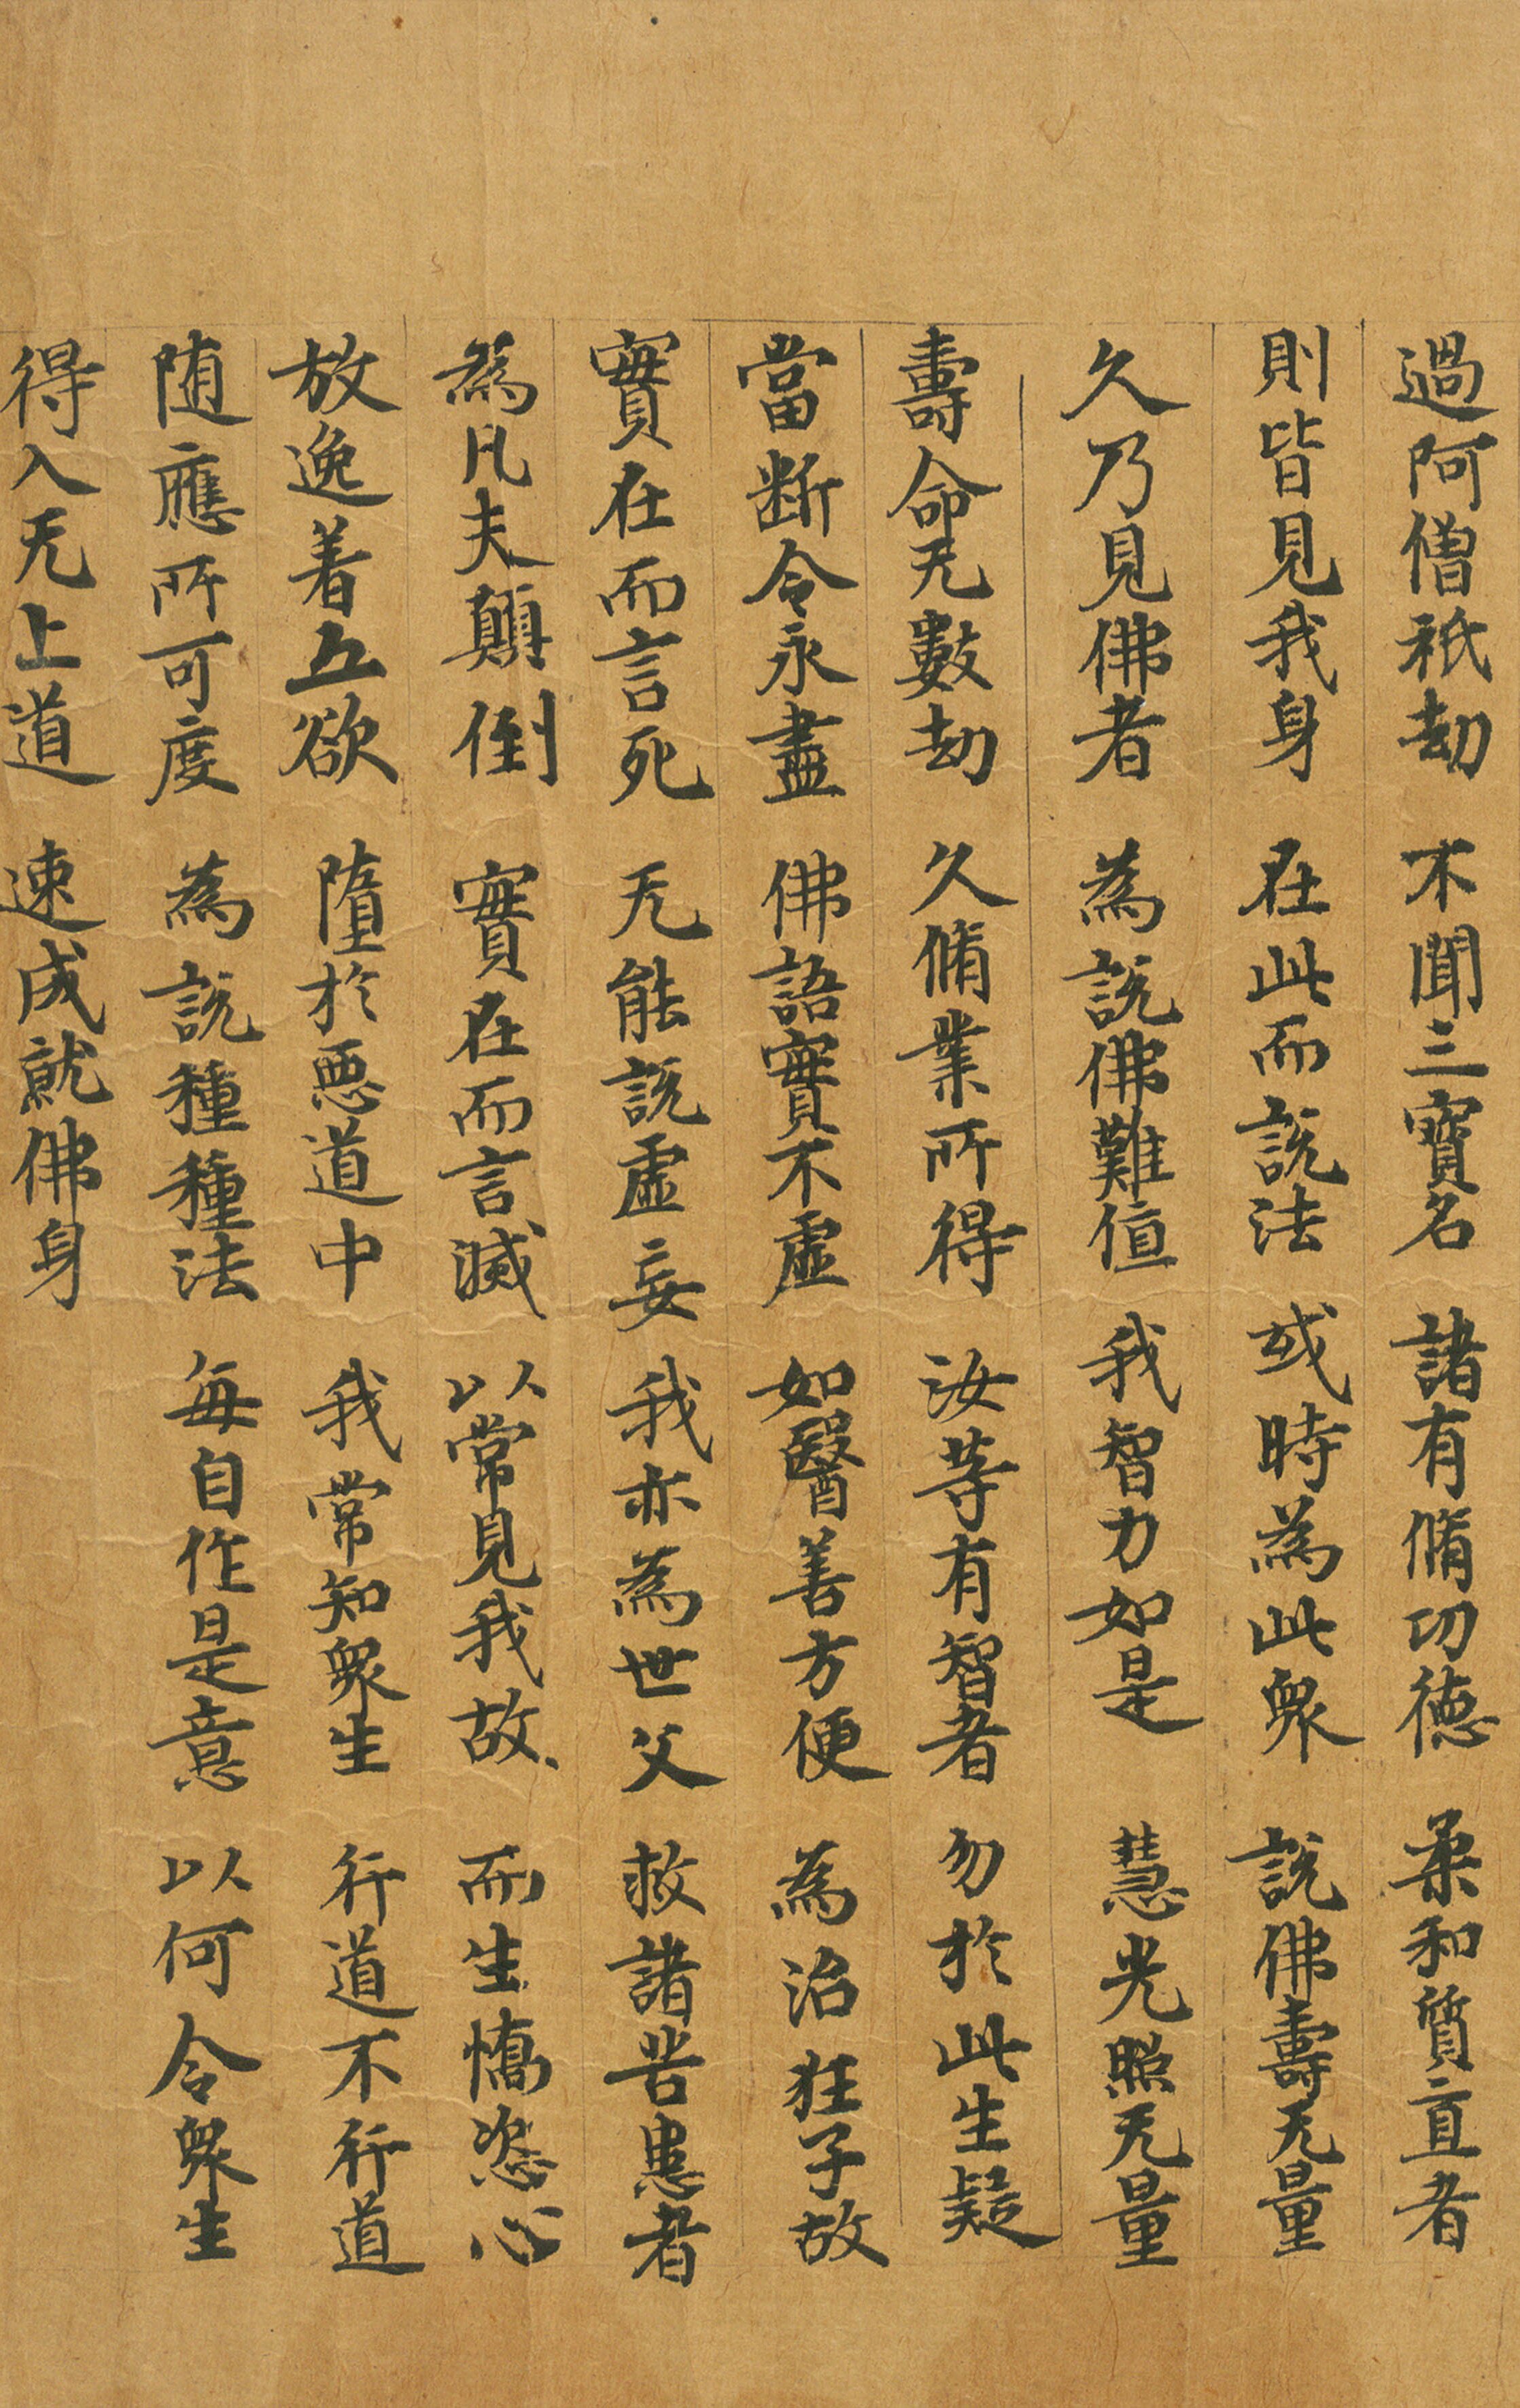 過阿僧祇劫 不聞三寶名 諸有脩功德 柔和質直者
則皆見我身 在此而說法 或時為此衆 說佛壽无量
久乃見佛者 為說佛難值 我智力如是 慧光照无量
壽命无數劫 久脩業所得 汝等有智者 勿於此生疑
當断令永盡 佛語實不虛 如醫善方便 為治狂子故
實在而言死 无能說虛妄 我亦為世父 救諸苦患者
為凡夫顛倒 實在而言滅 以常見我故 而生憍恣心
放逸着五欲 墮於惡道中 我常知衆生 行道不行道
随應所可度 為說種種法 每自作是意 以何令衆生
得入无上道 速成就佛身